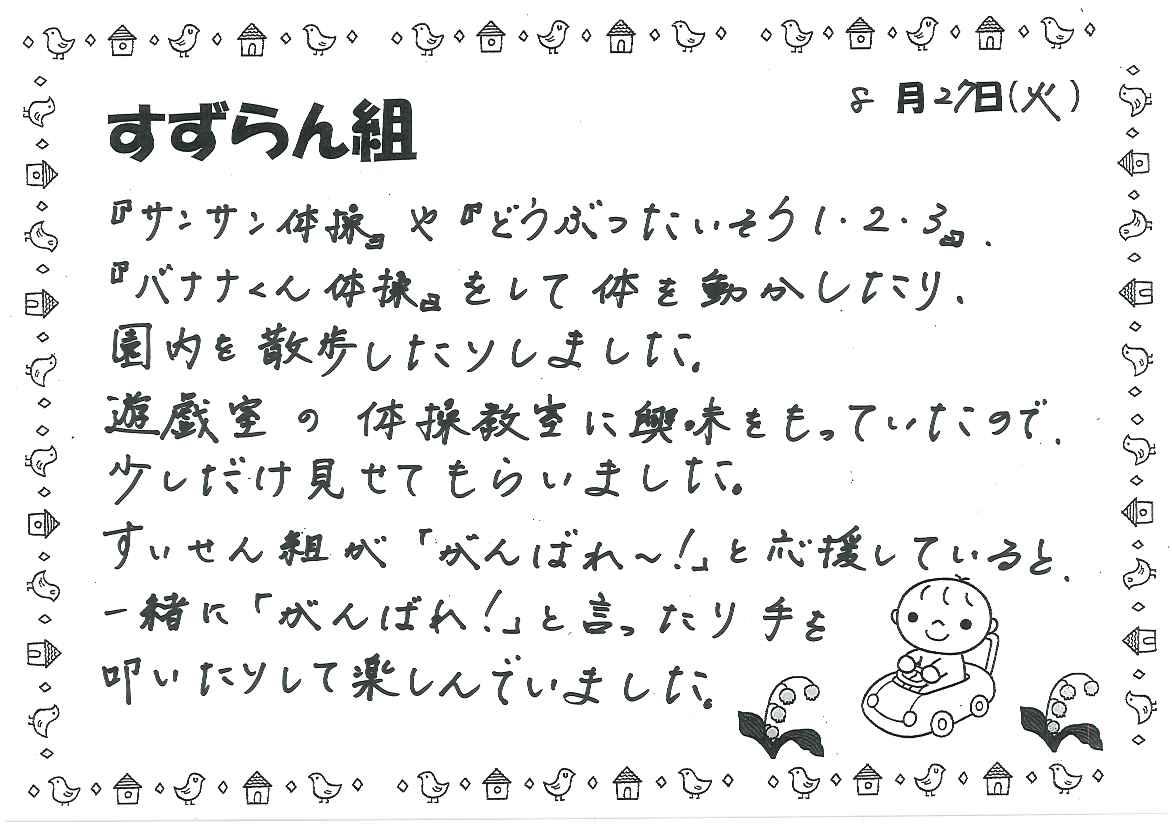 8月27日(火)
すずらん組
『サンサン体操』や『どうぶつたいそう1・2・3』、
『バナナくん体操』をして体を動かしたり、
園内を散歩したりしました。
遊戯室の体操教室に興味をもっていたので、
少しだけ見せてもらいました。
すいせん組が「がんばれ~!」と応援していると、
一緒に「がんばれ!」と言ったり手を
叩いたりして楽しんでいました。